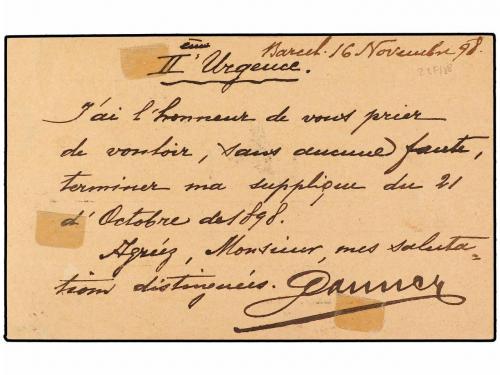 Barcel. 16 Novembre 98.
IIème Urgence.
J'ai l'honneur de vous prier
de vouloir, sans aucune faute,
terminer ma supplique du 21
d'Octobre de 1898.
Agréez, Monsieur, mes saluta=
tions distinguées.